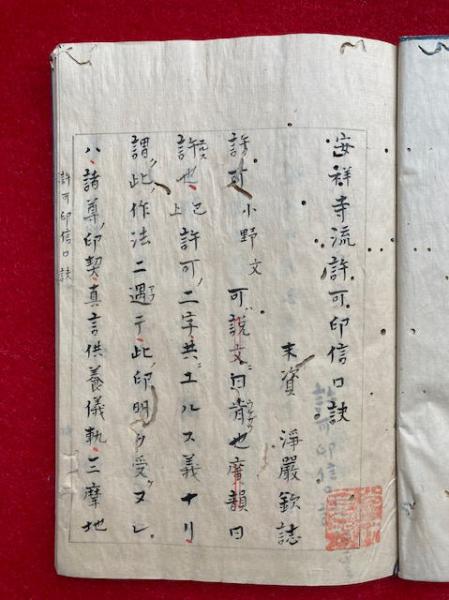 安祥寺流許可印信口訣
末資 淨嚴欽誌
許可 小野文 可說文曰肯也廣韻曰
許也 已上 許可ノ二字共ニユルス義ナリ
謂ク此ノ作法ニ遇テ此ノ印明ヲ受ヌレ
ハ諸尊ノ印契真言供養儀軌三摩地
許可印信口訣